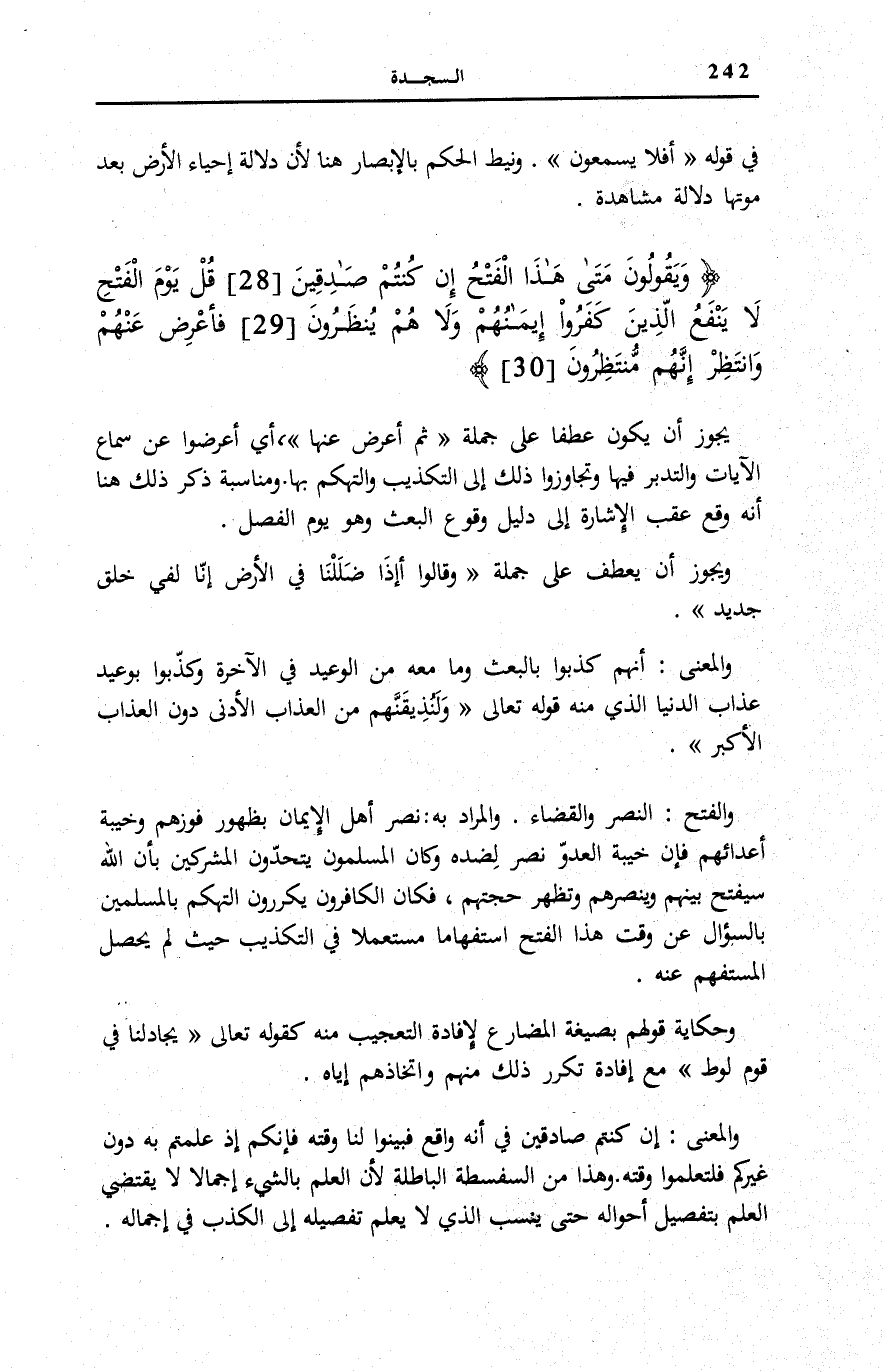 242
السـجـــدة
في قوله « أفلا يسمعون » . ونيط الحكم بالإبصار هنا لأن دلالة إحياء الأرض بعد
موتها دلالة مشاهدة .
﴿ وَيَقُولُونَ مَتَىٰ هَـٰذَا الْفَتْحُ إِن كُنتُمْ صَـٰدِقِينَ [28] قُلْ يَوْمَ الْفَتْحِ
لَا يَنْفَعُ الَّذِينَ كَفَرُواْ إِيمَـٰنُهُمْ وَلَا هُمْ يُنظَرُونَ [29] فأَعْرِض عَنْهُمْ
وَانتَظِرْ إِنَّهُم مُّنتَظِرُونَ [30] ﴾
يجوز أن يكون عطفا على جملة « ثم أعرض عنها »، أي أعرضوا عن سماع
الآيات والتدبر فيها وتجاوزوا ذلك إلى التكذيب والتهكم بها.ومناسبة ذكر ذلك هنا
أنه وقع عقب الإشارة إلى دليل وقوع البعث وهو يوم الفصل .
ويجوز أن يعطف على جملة « وقالوا أإذَا ضَلَلْنَا في الأرض إنّا لفي خلق
جديد » .
والمعنى : أنهم كذبوا بالبعث وما معه من الوعيد في الآخرة وكذّبوا بوعيد
عذاب الدنيا الذي منه قوله تعالى « وَلَنُذِيقَنَّهم من العذاب الأدنى دون العذاب
الأكبر » .
والفتح : النصر والقضاء . والمراد به:نصر أهل الإيمان بظهور فوزهم وخيبة
أعدائهم فإن خيبة العدوّ نصر لِضده وكان المسلمون يتحدّون المشركين بأن الله
سيفتح بينهم وينصرهم وتظهر حجتهم ، فكان الكافرون يكررون التهكم بالمسلمين
بالسؤال عن وقت هذا الفتح استفهاما مستعملا في التكذيب حيث لم يحصل
المستفهم عنه .
وحكاية قولهم بصيغة المضارع لإفادة التعجيب منه كقوله تعالى « يجادلنا في
قوم لوط » مع إفادة تكرر ذلك منهم واتخاذهم إياه .
والمعنى : إن كنتم صادقين في أنه واقع فبينوا لنا وقته فإنكم إذ علمتم به دون
غيركم فلتعلموا وقته.وهذا من السفسطة الباطلة لأن العلم بالشيء إجمالا لا يقتضي
العلم بتفصيل أحواله حتى ينسب الذي لا يعلم تفصيله إلى الكذب في إجماله .